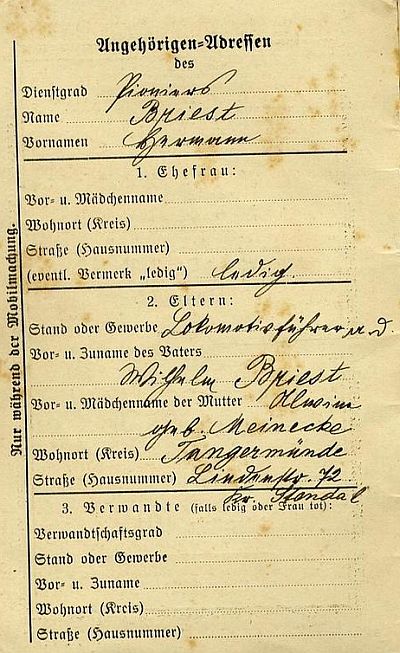 Angehörigen-Adressen
des
Dienstgrad Pioniers
Name Briest
Vornamen Hermann
1. Ehefrau:
Vor- u. Mädchenname
Wohnort (Kreis)
Straße (Hausnummer)
(eventl. Vermerk „ledig") ledig.
2. Eltern:
Stand oder Gewerbe Lokomotivführer a. d.
Vor- u. Zuname des Vaters
Wilhelm Briest
Vor- u. Mädchenname der Mutter Alwine
geb. Meinecke
Wohnort (Kreis) Tangermünde
Straße (Hausnummer) Lindenstr. 72
Kr. Stendal
3. Verwandte (falls ledig oder Frau tot):
Verwandtschaftsgrad
Stand oder Gewerbe
Vor- u. Zuname
Wohnort (Kreis)
Straße (Hausnummer)
Nur während der Mobilmachung.